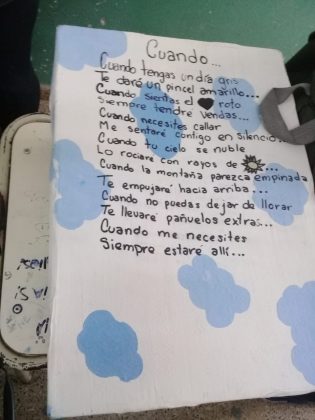 Cuando...
Cuando tengas un día gris
Te daré un pincel amarillo...
Cuando sientas el roto
Siempre tendre vendas...
Cuando necesites callar
Me sentaré contigo en silencio...
Cuando tu cielo se nuble
Lo rociare con rayos de ...
Cuando la montaña parezca empinada
Te empujaré hacia arriba...
Cuando no puedas dejar de llorar
Te llevaré pañuelos extras...
Cuando me necesites
Siempre estaré allí...